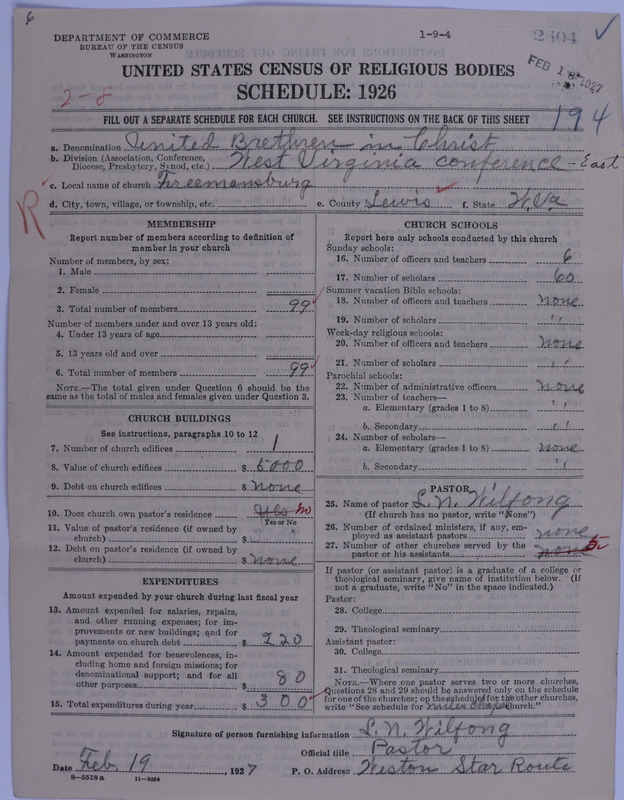 6
DEPARTMENT OF COMMERCE
BUREAU OF THE CENSUS
WASHINGTON
1-9-4
2604
FEB 1 1927
UNITED STATES CENSUS OF RELIGIOUS BODIES
2-8
SCHEDULE: 1926
FILL OUT A SEPARATE SCHEDULE FOR EACH CHURCH. SEE INSTRUCTIONS ON THE BACK OF THIS SHEET
194
a. Denomination United Brethren in Christ
b. Division (Association, Conference, Diocese, Presbytery, Synod, etc.) West Virginia conference - East
c. Local name of church Freemansburg
R
d. City, town, village, or township, etc. e. County Lewis f. State W.Va
MEMBERSHIP
Report number of members according to definition of
member in your church
Number of members, by sex:
1. Male
2. Female
3. Total number of members 99
Number of members under and over 13 years old:
4. Under 13 years of age
5. 13 years old and over
6. Total number of members 99
NOTE.—The total given under Question 6 should be the
same as the total of males and females given under Question 3.
CHURCH BUILDINGS
See instructions, paragraphs 10 to 12
7. Number of church edifices 1
8. Value of church edifices $ 5000
9. Debt on church edifices $ none
10. Does church own pastor's residence Yes no
Yes or No
11. Value of pastor's residence (if owned by
church) $
12. Debt on pastor's residence (if owned by
church) $ none
EXPENDITURES
Amount expended by your church during last fiscal year
13. Amount expended for salaries, repairs,
and other running expenses; for im-
provements or new buildings; and for
payments on church debt $ 220
14. Amount expended for benevolences, in-
cluding home and foreign missions; for
denominational support; and for all
other purposes $ 80
15. Total expenditures during year $ 300
CHURCH SCHOOLS
Report here only schools conducted by this church
Sunday schools:
16. Number of officers and teachers 6
17. Number of scholars 60
Summer vacation Bible schools:
18. Number of officers and teachers none
19. Number of scholars "
Week-day religious schools:
20. Number of officers and teachers none
21. Number of scholars "
Parochial schools:
22. Number of administrative officers none
23. Number of teachers—
a. Elementary (grades 1 to 8) "
b. Secondary "
24. Number of scholars—
a. Elementary (grades 1 to 8) none
b. Secondary "
PASTOR
25. Name of pastor L. N. Wilfong
(If church has no pastor, write "None")
26. Number of ordained ministers, if any, em-
ployed as assistant pastors none
27. Number of other churches served by the
pastor or his assistants none 5
If pastor (or assistant pastor) is a graduate of a college or
theological seminary, give name of institution below. (If
not a graduate, write "No" in the space indicated.)
Pastor:
28. College
29. Theological seminary
Assistant pastor:
30. College
31. Theological seminary
NOTE.—Where one pastor serves two or more churches,
Questions 28 and 29 should be answered only on the schedule
for one of the churches; on the schedules for the other churches,
write "See schedule for Miles Chapel church."
Signature of person furnishing information L. N. Wilfong
Official title Pastor
Date Feb. 19, 1927 P. O. Address Weston Star Route
8—5518a 11—9264